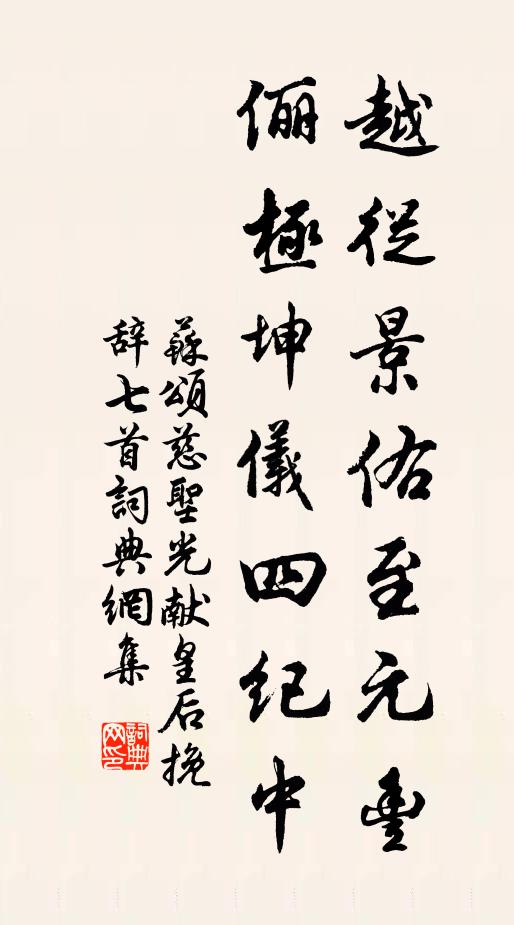 越從景佑至元豐
儷極坤儀四紀中
蘇頌慈聖光献皇后挽
辞七首詞典網集
詞典網印